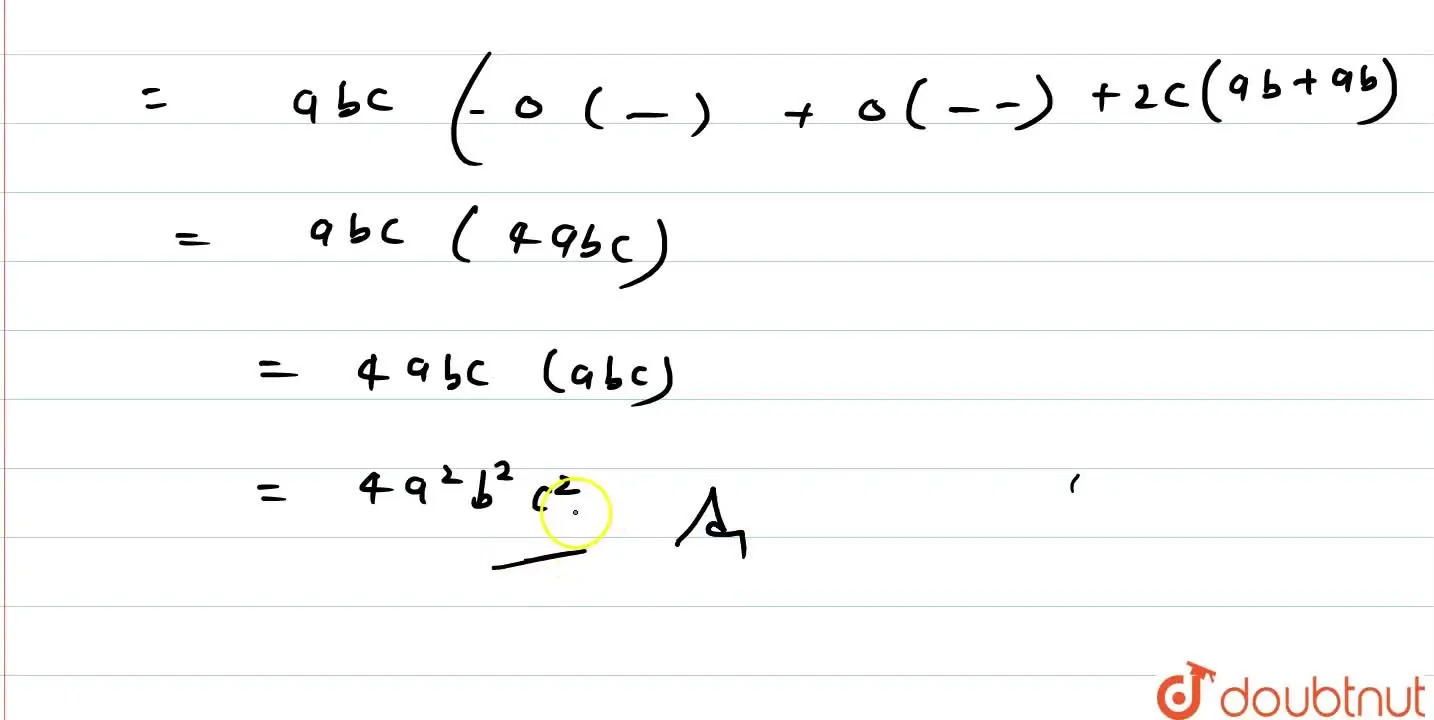 = abc (- 0 (—) + 0 (– –) + 2c (ab + ab)
= abc (4abc)
= 4abc (abc)
= 4a²b²c²
doubtnut